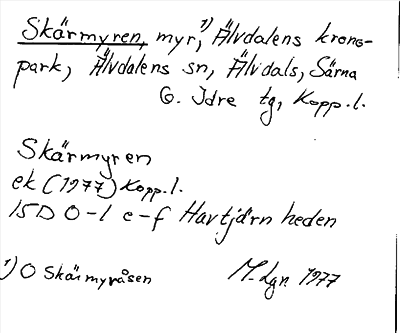 Skärmyren, myr,¹) Älvdalens krono-
park, Älvdalens sn, Älvdals, Särna
o. Idre tg, Kopp.l.
Skärmyren
ek (1977) Kopp.l.
15D 0-1 e-f Havtjärnheden
¹) O Skärmyråsen M-Lgn 1977